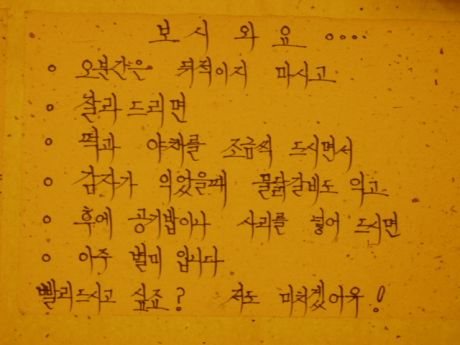 보시와요 ....
○ 오분간은 뒤적이지 마시고
○ 찰라드리면
○ 떡과 야채를 조금씩 드시면서
○ 감자가 익었을때 물닭갈비도 익고
○ 후에 공기밥이나 사리를 넣어 드시면
○ 아주 별미 입니다
빨리드시고 싶죠? 저도 미치겠어유!